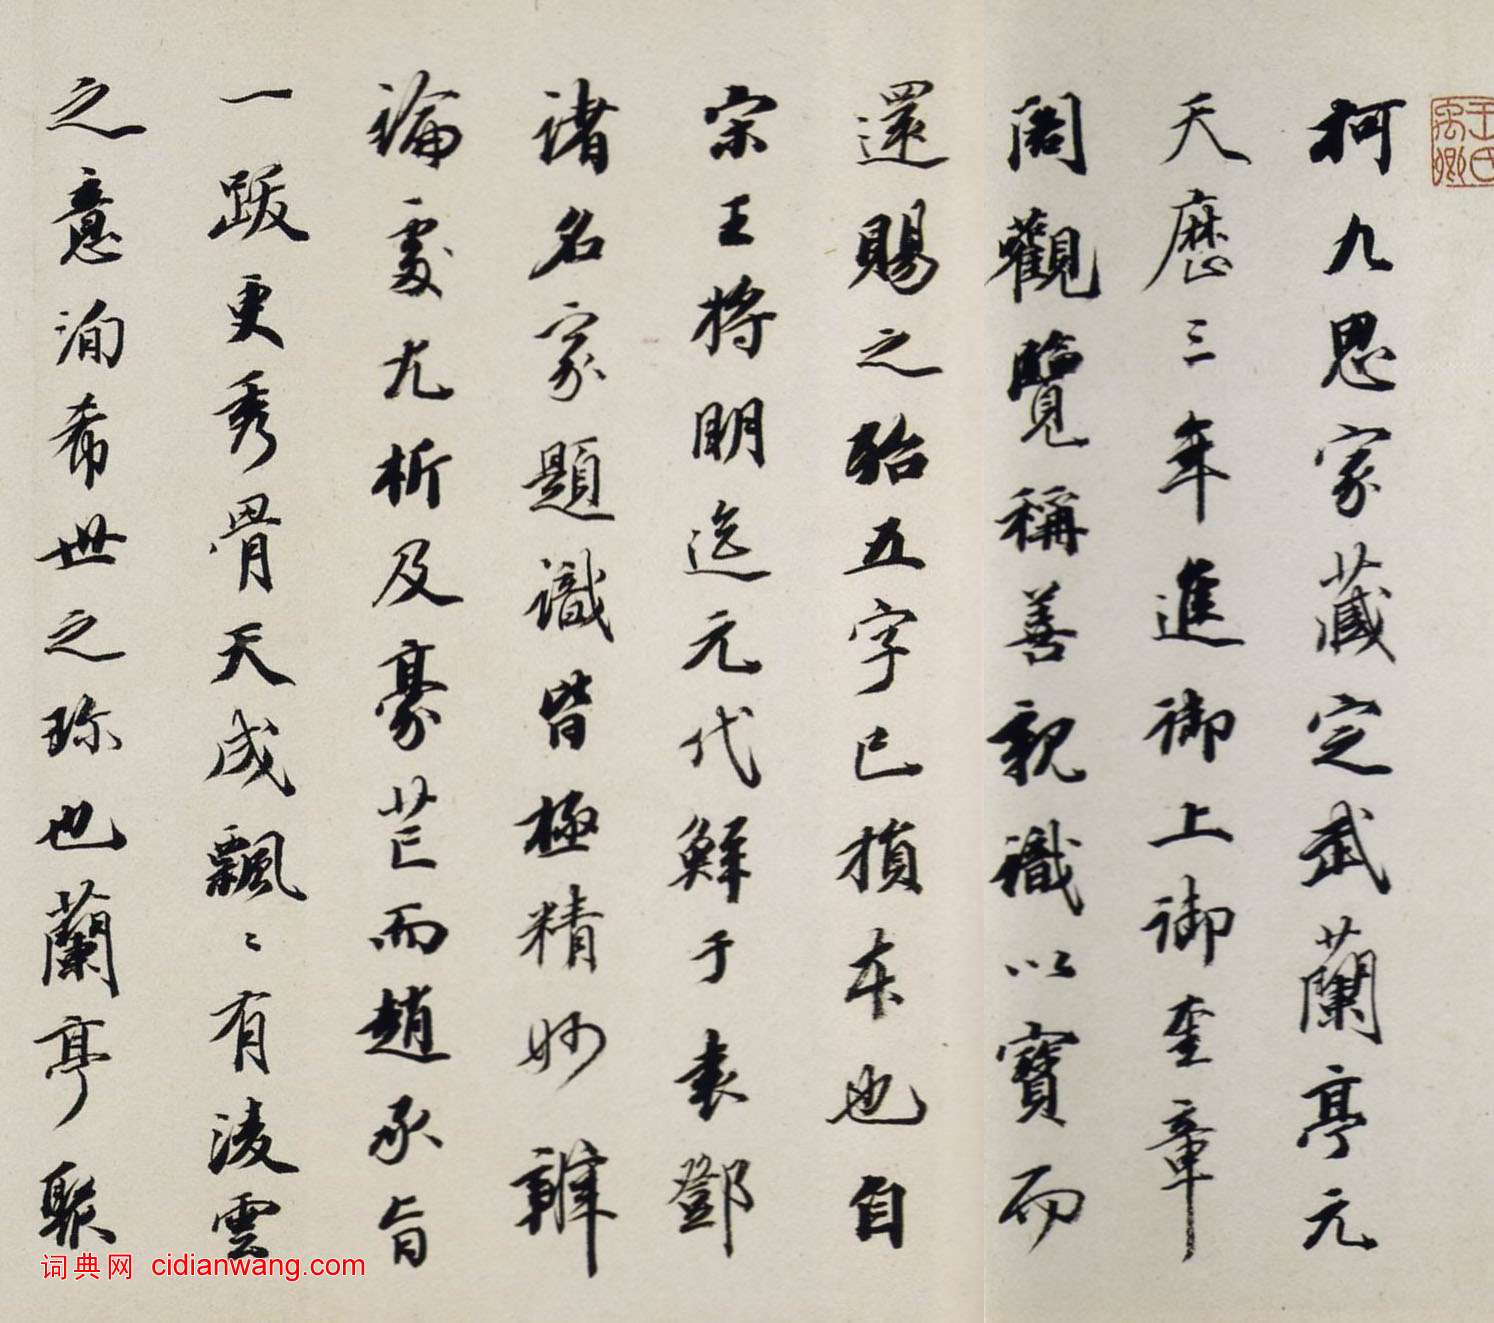 王氏禹卿
柯九思家藏定武蘭亭元
天曆三年進御上御奎章
閣觀覽稱善親識以寶而
還賜之殆五字已損本也自
宋王將明迄元代鮮于袁鄧
諸名家題識皆極精妙辨
論處尤析及豪芒而趙承旨
一跋更秀骨天成飄〻有淩雲
之意洵希世之珍也蘭亭聚
词典网 cidianwang.com